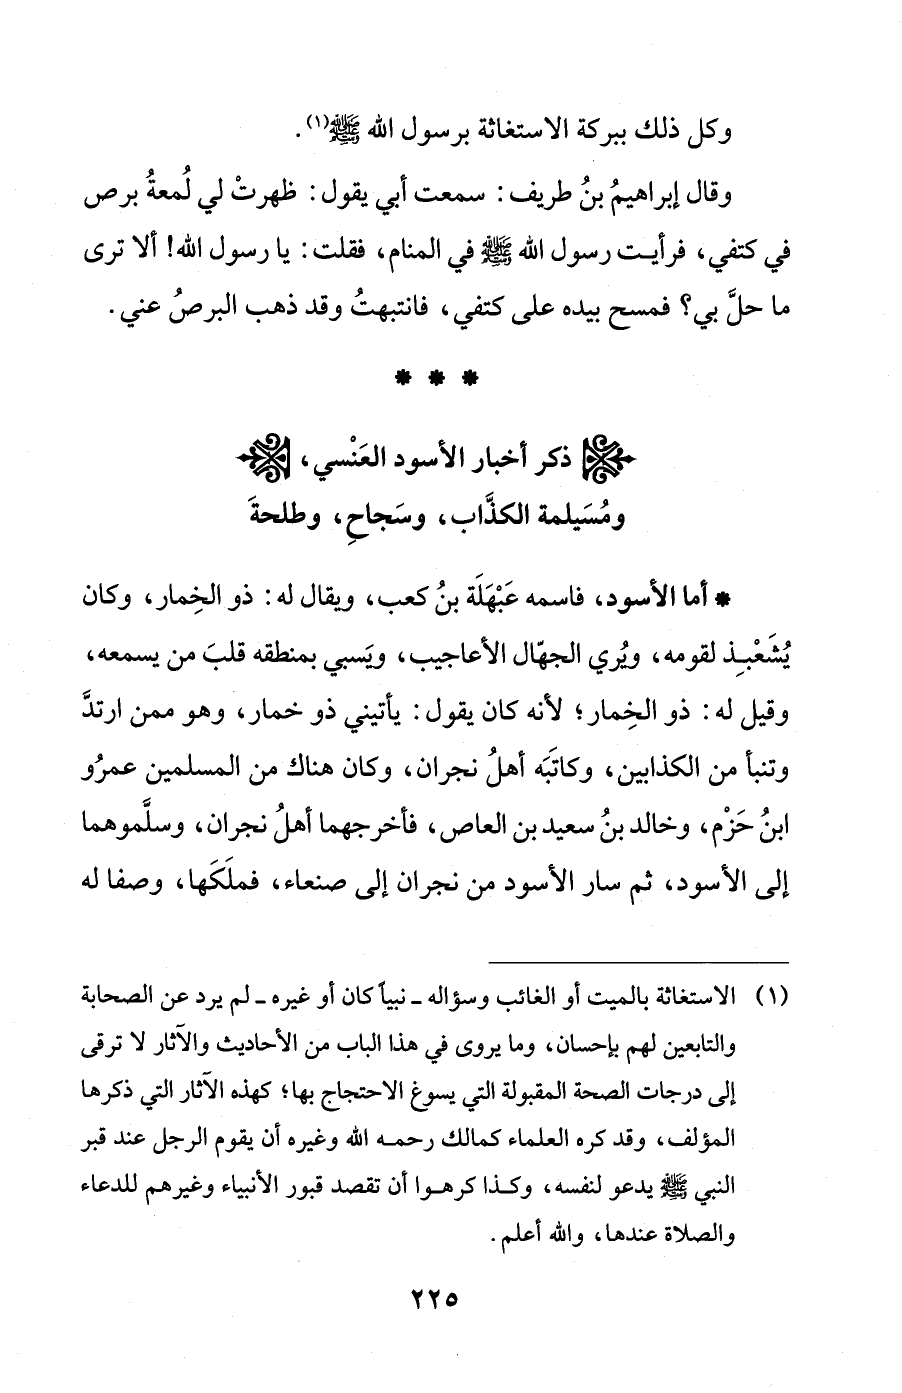 وكل ذلك ببركة الاستغاثة برسول الله ﷺ(١).
وقال إبراهيمُ بنُ طريف: سمعت أبي يقول: ظهرتْ لي لُمعةُ برص
في كتفي، فرأيت رسول الله ﷺ في المنام، فقلت: يا رسول الله! ألا ترى
ما حلَّ بي؟ فمسح بيده على كتفي، فانتبهتُ وقد ذهب البرصُ عني.
* * *
ذكر أخبار الأسود العَنْسي،
ومُسَيلمة الكذَّاب، وسَجاحِ، وطلحةَ
* أما الأسود، فاسمه عَبْهَلَة بنُ كعب، ويقال له: ذو الخِمار، وكان
يُشَعْبِذ لقومه، ويُري الجهّال الأعاجيب، ويَسبي بمنطقه قلبَ من يسمعه،
وقيل له: ذو الخِمار؛ لأنه كان يقول: يأتيني ذو خمار، وهو ممن ارتدَّ
وتنبأ من الكذابين، وكاتَبَه أهلُ نجران، وكان هناك من المسلمين عمرُو
ابنُ حَزْم، وخالد بنُ سعيد بن العاص، فأخرجهما أهلُ نجران، وسلَّموهما
إلى الأسود، ثم سار الأسود من نجران إلى صنعاء، فملَكَها، وصفا له
(١) الاستغاثة بالميت أو الغائب وسؤاله - نبياً كان أو غيره - لم يرد عن الصحابة
والتابعين لهم بإحسان، وما يروى في هذا الباب من الأحاديث والآثار لا ترقى
إلى درجات الصحة المقبولة التي يسوغ الاحتجاج بها؛ كهذه الآثار التي ذكرها
المؤلف، وقد كره العلماء كمالك رحمه الله وغيره أن يقوم الرجل عند قبر
النبي ﷺ يدعو لنفسه، وكذا كرهوا أن تقصد قبور الأنبياء وغيرهم للدعاء
والصلاة عندها، والله أعلم.
٢٢٥